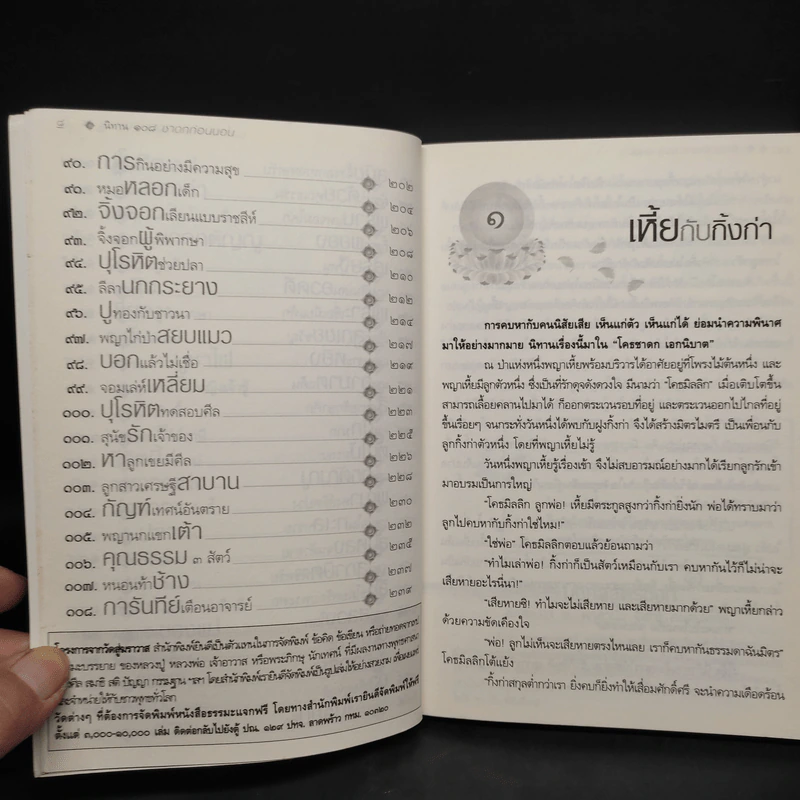 นิทาน ๑๐๘ ชาดกก่อนนอน
๙๐. การกินอย่างมีความสุข ๒๐๒
๙๑. หมอหลอกเด็ก ๒๐๔
๙๒. จิ้งจอกเลียนแบบราชสีห์ ๒๐๖
๙๓. จิ้งจอกผู้พิพากษา ๒๐๘
๙๔. ปุโรหิตช่วยปลา ๒๑๐
๙๕. ลีลานกกระยาง ๒๑๒
๙๖. ปูทองกับชาวนา ๒๑๔
๙๗. พญาไก่ป่าสยบแมว ๒๑๗
๙๘. บอกแล้วไม่เชื่อ ๒๑๙
๙๙. จอมเล่ห์เหลี่ยม ๒๒๑
๑๐๐. ปุโรหิตทดสอบศีล ๒๒๓
๑๐๑. สุนัขรักเจ้าของ ๒๒๕
๑๐๒. หาลูกเขยมีศีล ๒๒๖
๑๐๓. ลูกสาวเศรษฐีสาบาน ๒๒๘
๑๐๔. กัณฑ์เทศน์อันตราย ๒๓๐
๑๐๕. พญานกแขกเต้า ๒๓๒
๑๐๖. คุณธรรม ๓ สัตว์ ๒๓๕
๑๐๗. หนอนท้าช้าง ๒๓๗
๑๐๘. การันทีย์เตือนอาจารย์ ๒๓๙
โครงการจากวัดสู่ผราวาส สำนักพิมพ์ยินดีเป็นตัวแทนในการจัดพิมพ์ ข้อคิด ข้อเขียน หรือถ่ายทอดจากเทป
บรรยาย ของหลวงปู่ หลวงพ่อ เจ้าอาวาส หรือพระภิกษุ นักเทศน์ ที่มีผลงานทางพุทธศาสนา
สมธิ สติ ปัญญา กรรมฐาน ฯลฯ โดยสำนักพิมพ์เรายินดีจัดพิมพ์เป็นรูปเล่มให้อย่างสวยงาม เพื่อเผยแผ่
จำหน่ายให้กับชาวพุทธทั่วโลก
วัดต่างๆ ที่ต้องการจัดพิมพ์หนังสือธรรมะแจกฟรี โดยทางสำนักพิมพ์เรายินดีจัดพิมพ์ให้ฟรี
ตั้งแต่ ๓,๐๐๐-๑๐,๐๐๐ เล่ม ติดต่อกลับไปยังตู้ ปณ. ๑๒๙ ปทจ. ลาดพร้าว กทม. ๑๐๓๑๐
๑
เหี้ยกับกิ้งก่า
การคบหากับคนนิสัยเสีย เห็นแก่ตัว เห็นแก่ได้ ย่อมนำความพินาศ
มาให้อย่างมากมาย นิทานเรื่องนี้มาใน "โคธชาดก เอกนิบาต"
ณ ป่าแห่งหนึ่งพญาเหี้ยพร้อมบริวารได้อาศัยอยู่ที่โพรงไม้ต้นหนึ่ง และ
พญาเหี้ยมีลูกตัวหนึ่ง ซึ่งเป็นที่รักดุจดังดวงใจ มีนามว่า "โคธมิลลิก" เมื่อเติบโตขึ้น
สามารถเลื้อยคลานไปมาได้ ก็ออกตระเวนรอบที่อยู่ และตระเวนออกไปไกลที่อยู่
ขึ้นเรื่อยๆ จนกระทั่งวันหนึ่งได้พบกับฝูงกิ้งก่า จึงได้สร้างมิตรไมตรี เป็นเพื่อนกับ
ลูกกิ้งก่าตัวหนึ่ง โดยที่พญาเหี้ยไม่รู้
วันหนึ่งพญาเหี้ยรู้เรื่องเข้า จึงไม่สบอารมณ์อย่างมากได้เรียกลูกรักเข้า
มาอบรมเป็นการใหญ่
"โคธมิลลิก ลูกพ่อ! เหี้ยมีตระกูลสูงกว่ากิ้งก่ายิ่งนัก พ่อได้ทราบมาว่า
ลูกไปคบหากับกิ้งก่าใช่ไหม!"
"ใช่พ่อ" โคธมิลลิกตอบแล้วย้อนถามว่า
"ทำไมเล่าพ่อ! กิ้งก่าก็เป็นสัตว์เหมือนกับเรา คบหากันไว้ก็ไม่น่าจะ
เสียหายอะไรนี่นา!"
"เสียหายซิ! ทำไมจะไม่เสียหาย และเสียหายมากด้วย" พญาเหี้ยกล่าว
ด้วยความขัดเคืองใจ
"พ่อ! ลูกไม่เห็นจะเสียหายตรงไหนเลย เราก็คบหากันธรรมดาฉันมิตร"
โคธมิลลิกโต้แย้ง
"กิ้งก่าสกุลต่ำกว่าเรา ยิ่งคบก็ยิ่งทำให้เสื่อมศักดิ์ศรี จะนำความเดือดร้อน